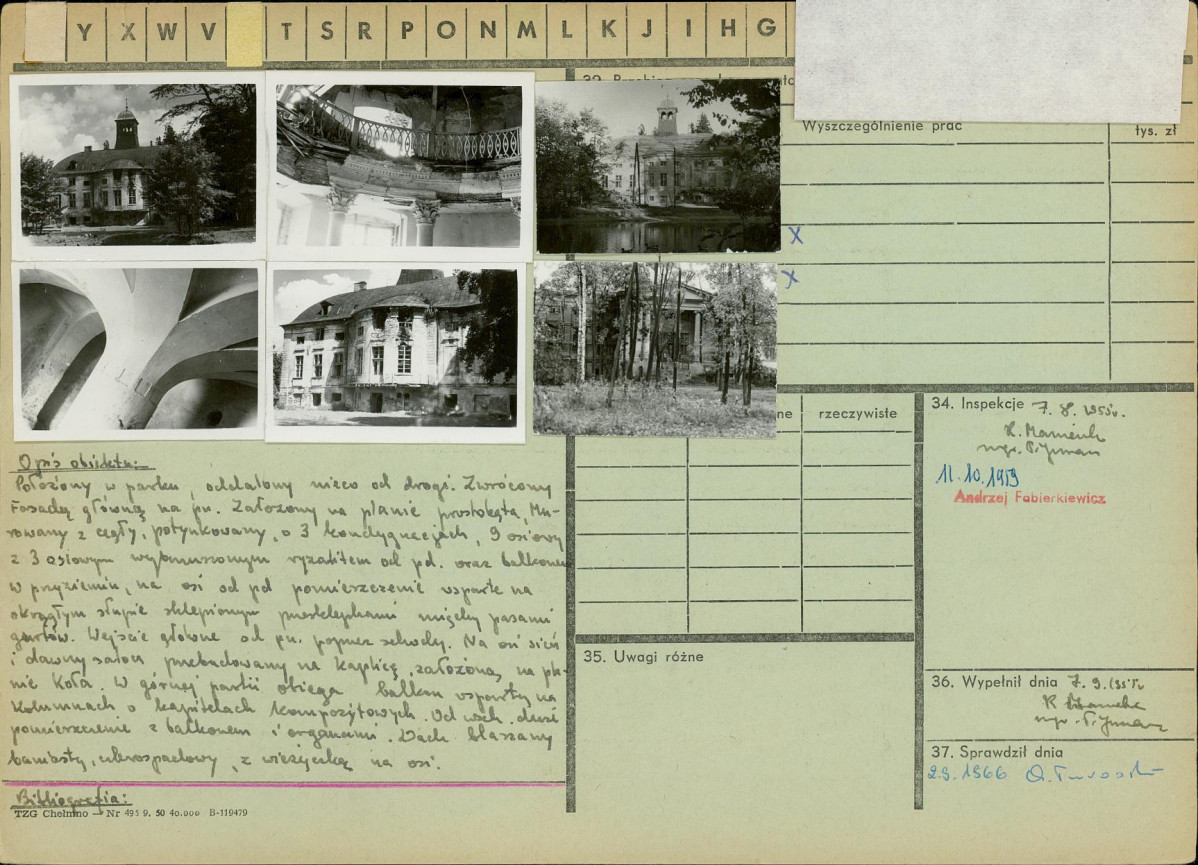 Y X W V T S R P O N M L K J I H G
Wyszczególnienie prac
tys. zł
x
x
ne
rzeczywiste
34. Inspekcje 7. 8. 1955r.
mgr.
11.10.1959
Andrzej Fabierkiewicz
Opis obiektu:
Położony w parku, oddalony nieco od drogi. Zwrócony
fasadą główną na pn. Założony na planie prostokąta, Mu-
rowany z cegły, potynkowany, o 3 kondygnacjach, 9 osiowy
z 3 osiowym wybrzuszonym ryzalitem od pd. oraz balkonem
w przyziemiu, na osi od pd pomieszczenie wsparte na
okrągłym słupie sklepionym między pasami
gurtów. Wejście główne od pn. poprzez schody. Na osi sień
i dawny salon przebudowany na kaplicę, założoną na pla-
nie koła. W górnej partii obiega balkon wsparty na
kolumnach o kapitelach kompozytowych. Od wsch. duże
pomieszczenie z balkonem i organami. Dach blaszany
łamany, czterospadowy, z wieżyczką na osi.
Bibliografia:
TZG Chełmno — Nr 495 9. 50 40.000 B-119479
35. Uwagi różne
36. Wypełnił dnia
mgr.
37. Sprawdził dnia
2.9.1966